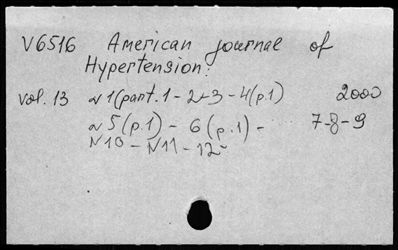 V6516 American journal of
Hypertension.
vol. 13 N1(part. 1-2-3-4(p.1) 2000
N5(p.1) - 6(p.1) - 7-8-9
N10 - N11 - 12-